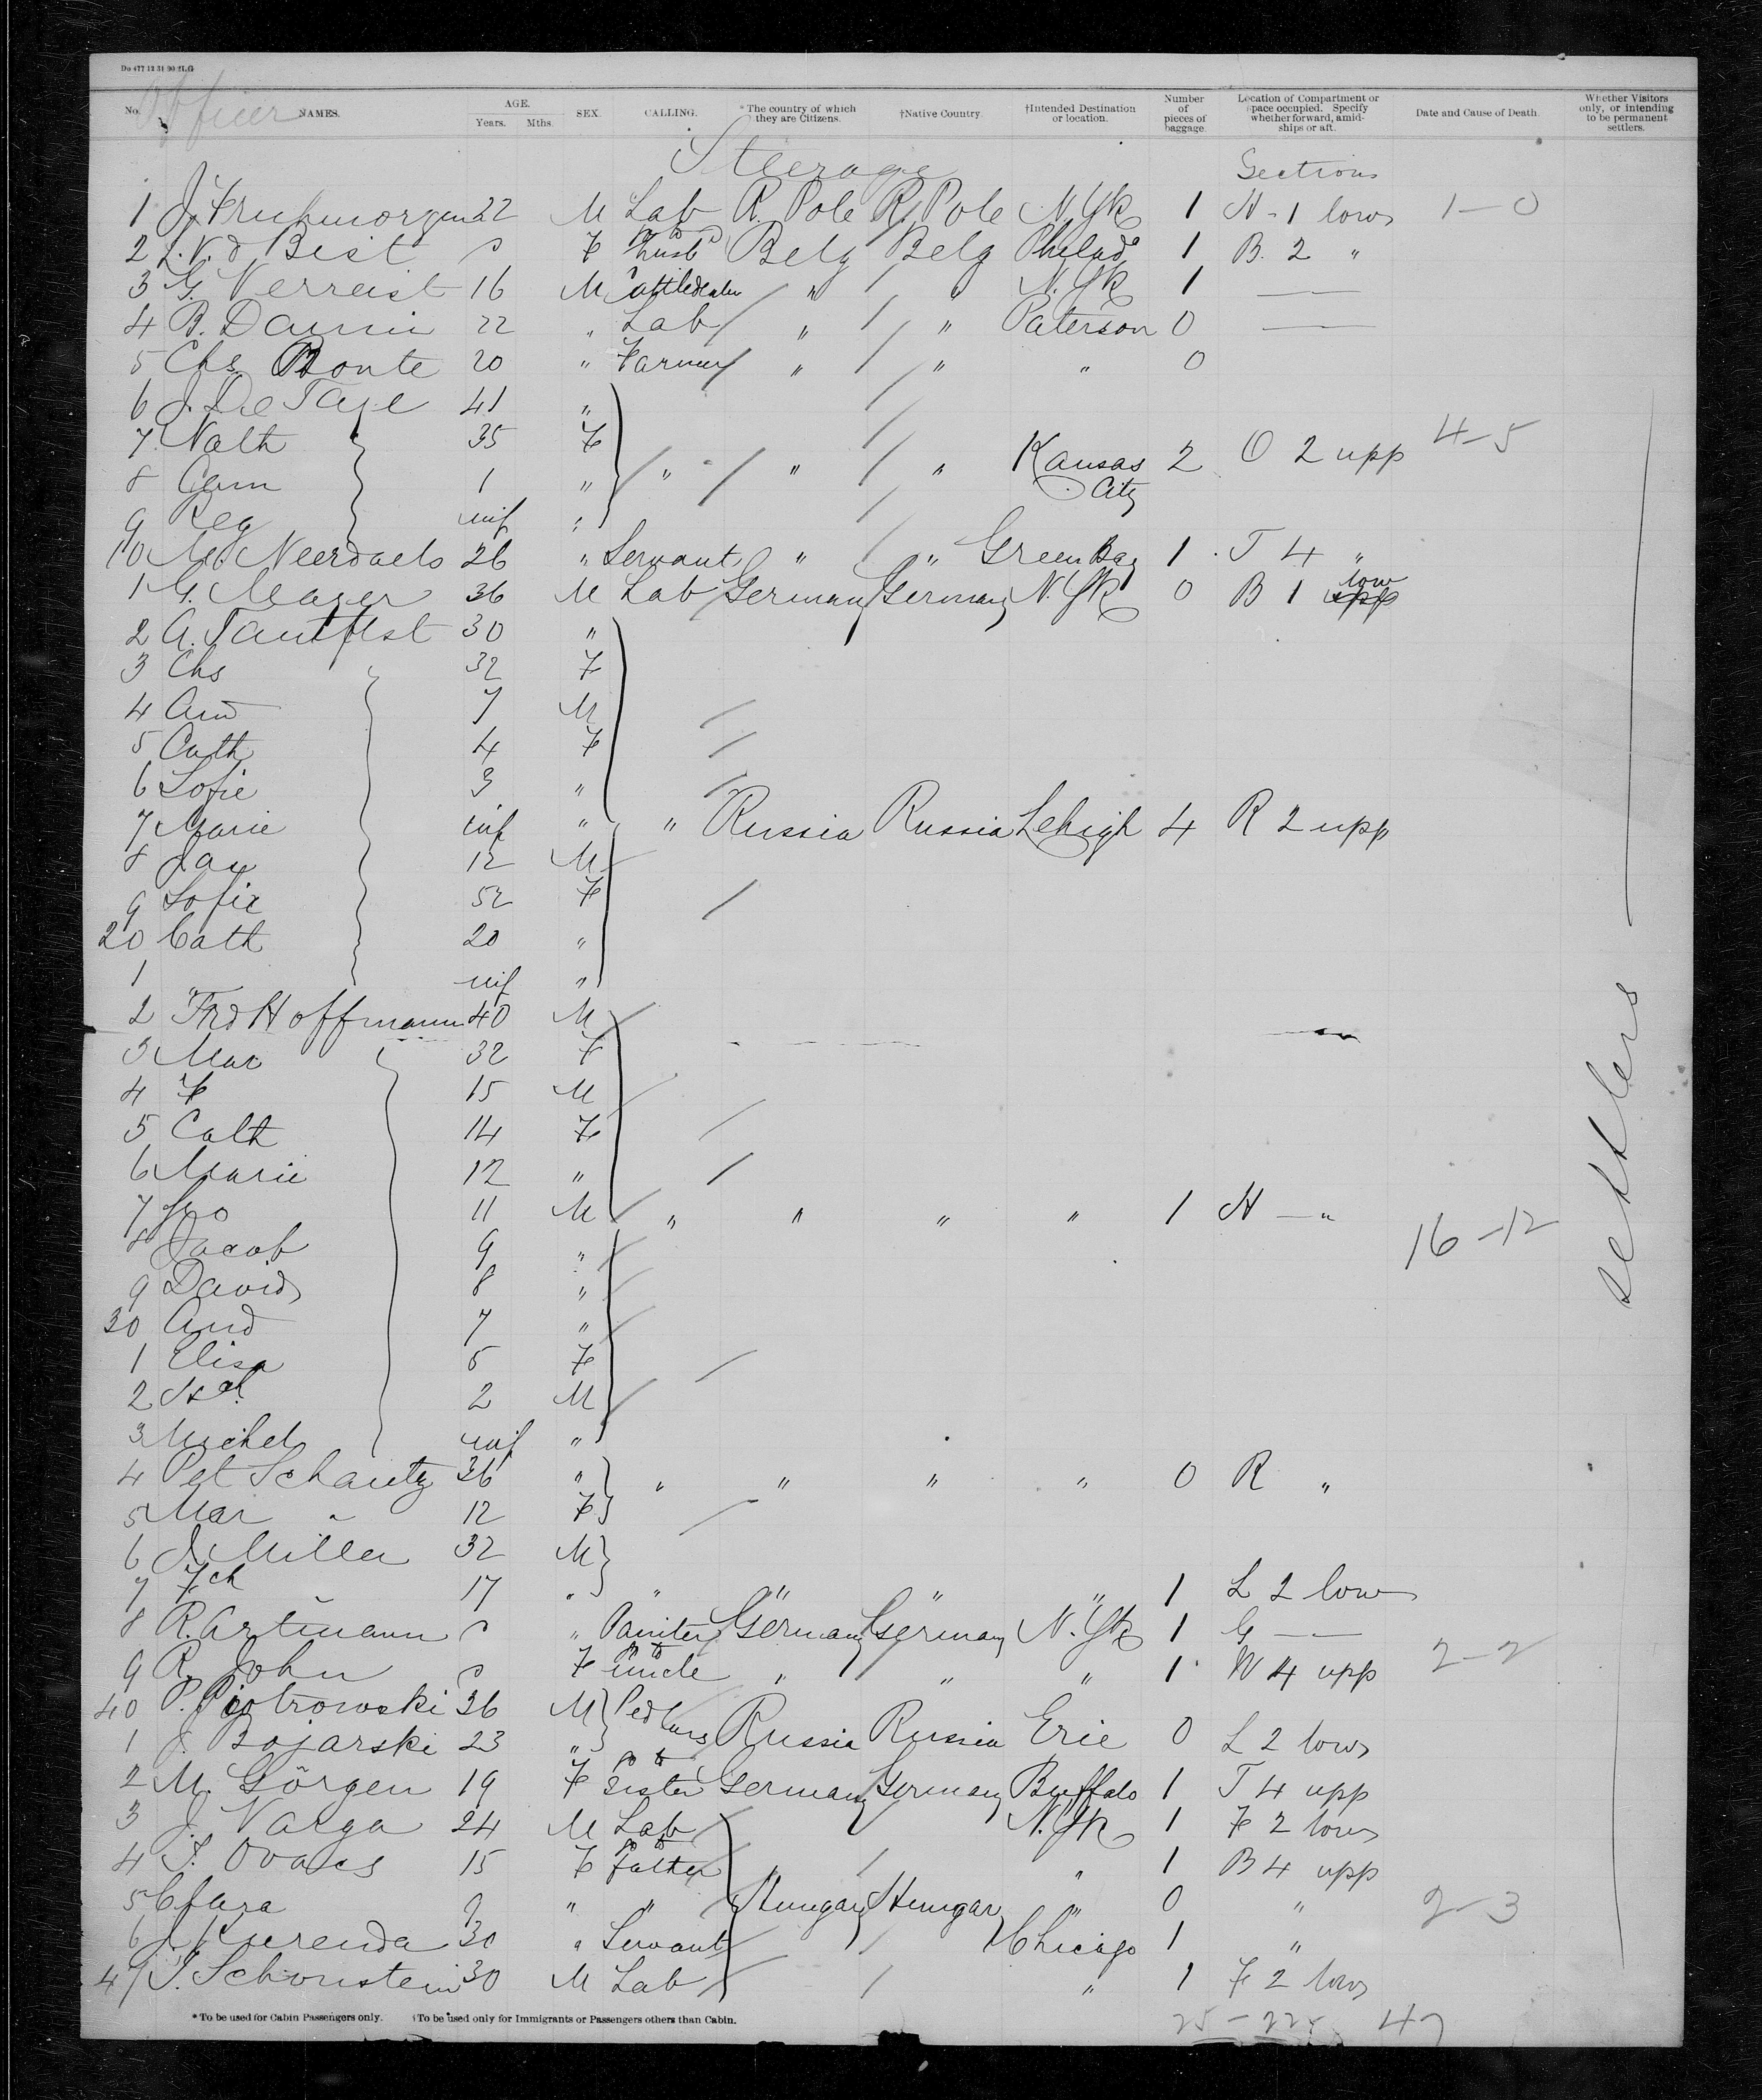 Do 477 12 31 90 2LG
Officer
No. NAMES. AGE. Years. Mths. SEX. CALLING. *The country of which they are Citizens. †Native Country. †Intended Destination or location. Number of pieces of baggage. Location of Compartment or space occupied. Specify whether forward, amidships or aft. Date and Cause of Death. Whether Visitors only, or intending to be permanent settlers.
Steerage Sections
1 J. Fruhmorgen 22 M Lab R. Pole R. Pole N. Yk 1 H - 1 low 1-0
2 Bist F to husb Belg Belg Philad 1 B. 2 "
3 G. Verreist 16 M Cattledealer " " N. Yk 1 —
4 B. Damin 22 " Lab " " Paterson 0 —
5 Chs Bonte 20 " Farmer " " " 0
6 J. De Taye 41 "
7 Nath 35 F " " " Kansas City 2 O 2 upp 4-5
8 Cam 1 "
9 Reg inf "
10 M. Neerdaels 26 " Servant " " Green Bay 1 T 4 "
1 G. Meayer 36 M Lab Germany Germany N. Yk 0 B 1 low
2 A. Tautfest 30 "
3 Chs 32 F
4 And 7 M
5 Cath 4 F
6 Sofie 3 "
7 Marie inf " " Russia Russia Lehigh 4 R 2 upp
8 Jan 12 M
9 Sofie 52 F
20 Cath 20 "
1 inf "
2 Frd Hoffmann 40 M
3 Mar 32 F
4 F 15 M
5 Cath 14 F
6 Marie 12 "
7 11 M " " " " 1 H — " 16-12
8 Jacob 9 "
9 David 8 "
30 And 7 "
1 Elisa 5 F
2 2 M
3 Michel inf "
4 Pet Schautz 36 " " " " " 0 R "
5 Mar " 12 F
6 J. Miller 32 M
7 Fch 17 " " " " " 1 L 2 low
8 R. Artmann " Painter Germany Germany N. Yk 1 G —
9 R. John F to uncle " " " 1 W 4 upp 2-2
40 P. Piotrowski 36 M Pedlars
1 J. Bojarski 23 " Russia Russia Erie 0 L 2 low
2 M. Görgen 19 F to sister Germany Germany Buffalo 1 T 4 upp
3 J. Varga 24 M Lab N. Yk 1 F 2 low
4 J. Ovacs 15 F to father " 1 B 4 upp
5 Clara 9 " " Hungary Hungary " 0 " 2-3
6 J. Kurenda 30 " Servant Chicago 1 "
47 J. Schonstein 30 M Lab " 1 F 2 low
settlers
*To be used for Cabin Passengers only. †To be used only for Immigrants or Passengers others than Cabin.
25-22 47